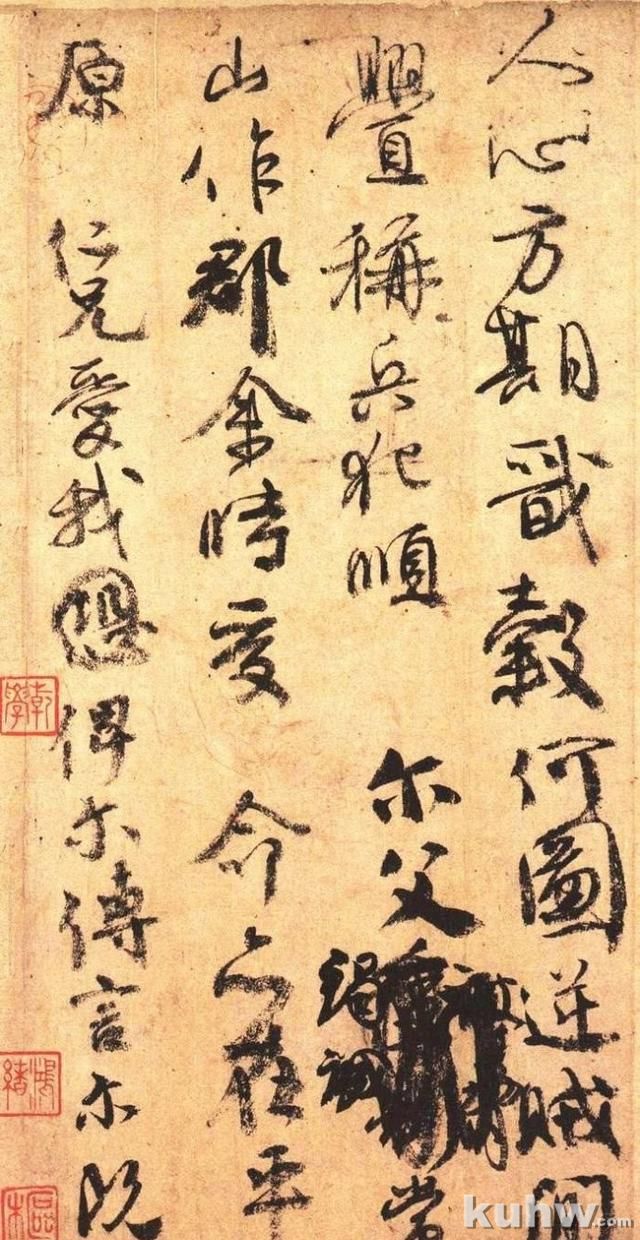 人心方期戩穀何圖逆賊間
舋稱兵犯順 尔父
竭誠
常
山作郡余時受 命亦在平
原 仁兄愛我恐俾尔傳言尔既
乾學
鴻緒
kuhw.com